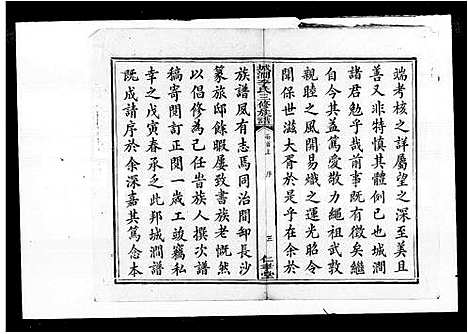 端考核之詳屬望之深至美且
善又非特慎其體例已也城澗
諸君勉乎哉前事既有徵矣繼
自今其益篤愛敬力繩祖武敦
親睦之風開易熾之運光昭令
聞保世滋大胥於是乎在余於
城澗李氏三修族譜
卷首上 序
三
仁孝堂
族譜夙有志焉同治間邨長沙
篆旅邸餘暇屢致書族老慨然
以倡修為己任耆族人撰次譜
稿寄閱訂正閱一歲工竣竊私
幸之戊寅春承乏此邦城澗譜
既成請序於余深嘉其篤念本